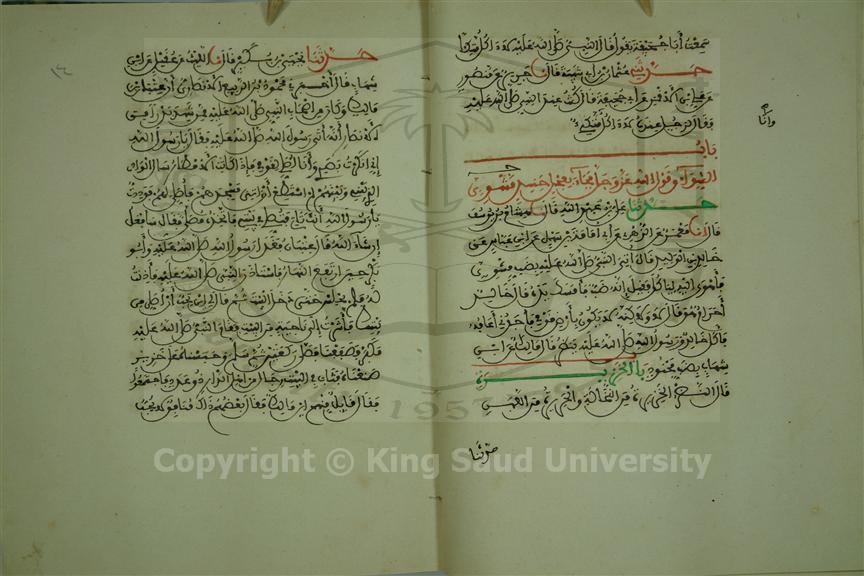 سمعت أبا جحيفة يقول قال النبي صلى الله عليه لا آكل متكئا
حدثني عثمان بن أبي شيبة قال أنا جرير عن منصور
عن علي بن الأقمر عن أبي جحيفة قال كنت عند النبي صلى الله عليه
فقال لرجل عنده لا آكل متكئا
وانا
باب
الشواء وقول الله عز وجل فجاء بعجل حنيذ مشوي
حدثنا علي بن عبد الله قال نا هشام بن يوسف
قال أنا معمر عن الزهري عن أبي أمامة بن سهل عن ابن عباس عن
خالد بن الوليد قال أتي النبي صلى الله عليه بضب مشوي
فأهوى إليه ليأكل فقيل إنه ضب فأمسك يده قال خالد
أحرام هو قال لا ولكنه لا يكون بأرض قومي فأجدني أعافه
فأكل خالد ورسول الله صلى الله عليه ينظر قال مالك عن ابن
شهاب بضب محنوذ باب الخزيرة
قال النضر الخزيرة من النخالة والحريرة من
حدثنا
١٤
حدثنا يحيى بن بكير قال نا الليث عن عقيل عن ابن
شهاب قال أخبرني محمود بن الربيع الأنصاري أن عتبان بن
مالك وكان من أصحاب النبي صلى الله عليه ممن شهد بدرا من
الأنصار أنه أتى رسول الله صلى الله عليه فقال يا رسول الله
إني أنكرت بصري وأنا أصلي لقومي فإذا كانت الأمطار سال الوادي
الذي بيني وبينهم لم أستطع أن آتي مسجدهم فأصلي لهم فوددت
يا رسول الله أنك تأتي فتصلي في بيتي فأتخذه مصلى فقال سأفعل
إن شاء الله قال عتبان فغدا رسول الله صلى الله عليه وأبو
بكر حين ارتفع النهار فاستأذن النبي صلى الله عليه فأذنت
له فلم يجلس حتى دخل البيت ثم قال لي أين تحب أن أصلي من
بيتك فأشرت إلى ناحية من البيت فقام النبي صلى الله عليه
فكبر فصففنا فصلى ركعتين ثم سلم وحبسناه على خزير
صنعناه فثاب في البيت رجال من أهل الدار ذوو عدد فاجتمعوا
فقال قائل منهم أين مالك فقال بعضهم ذلك منافق لا يحب
1957
Copyright © King Saud University